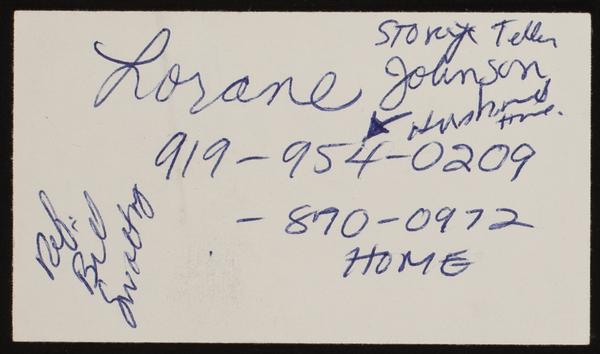 Storyteller
Lorane Johnson
Husband
Home.
919-954-0209
-870-0972
HOME
Ref.
Bill